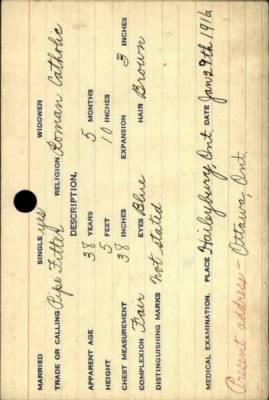 MARRIED SINGLE yes WIDOWER
TRADE OR CALLING Pipe Fitter RELIGION Roman Catholic
DESCRIPTION.
APPARENT AGE 38 YEARS 5 MONTHS
HEIGHT 5 FEET 10 INCHES
CHEST MEASUREMENT 38 INCHES EXPANSION 3 INCHES
COMPLEXION Fair EYES Blue HAIR Brown
DISTINGUISHING MARKS Not stated
MEDICAL EXAMINATION. PLACE Haileybury, Ont. DATE Jan 29th 1916
Present address - Ottawa, Ont.